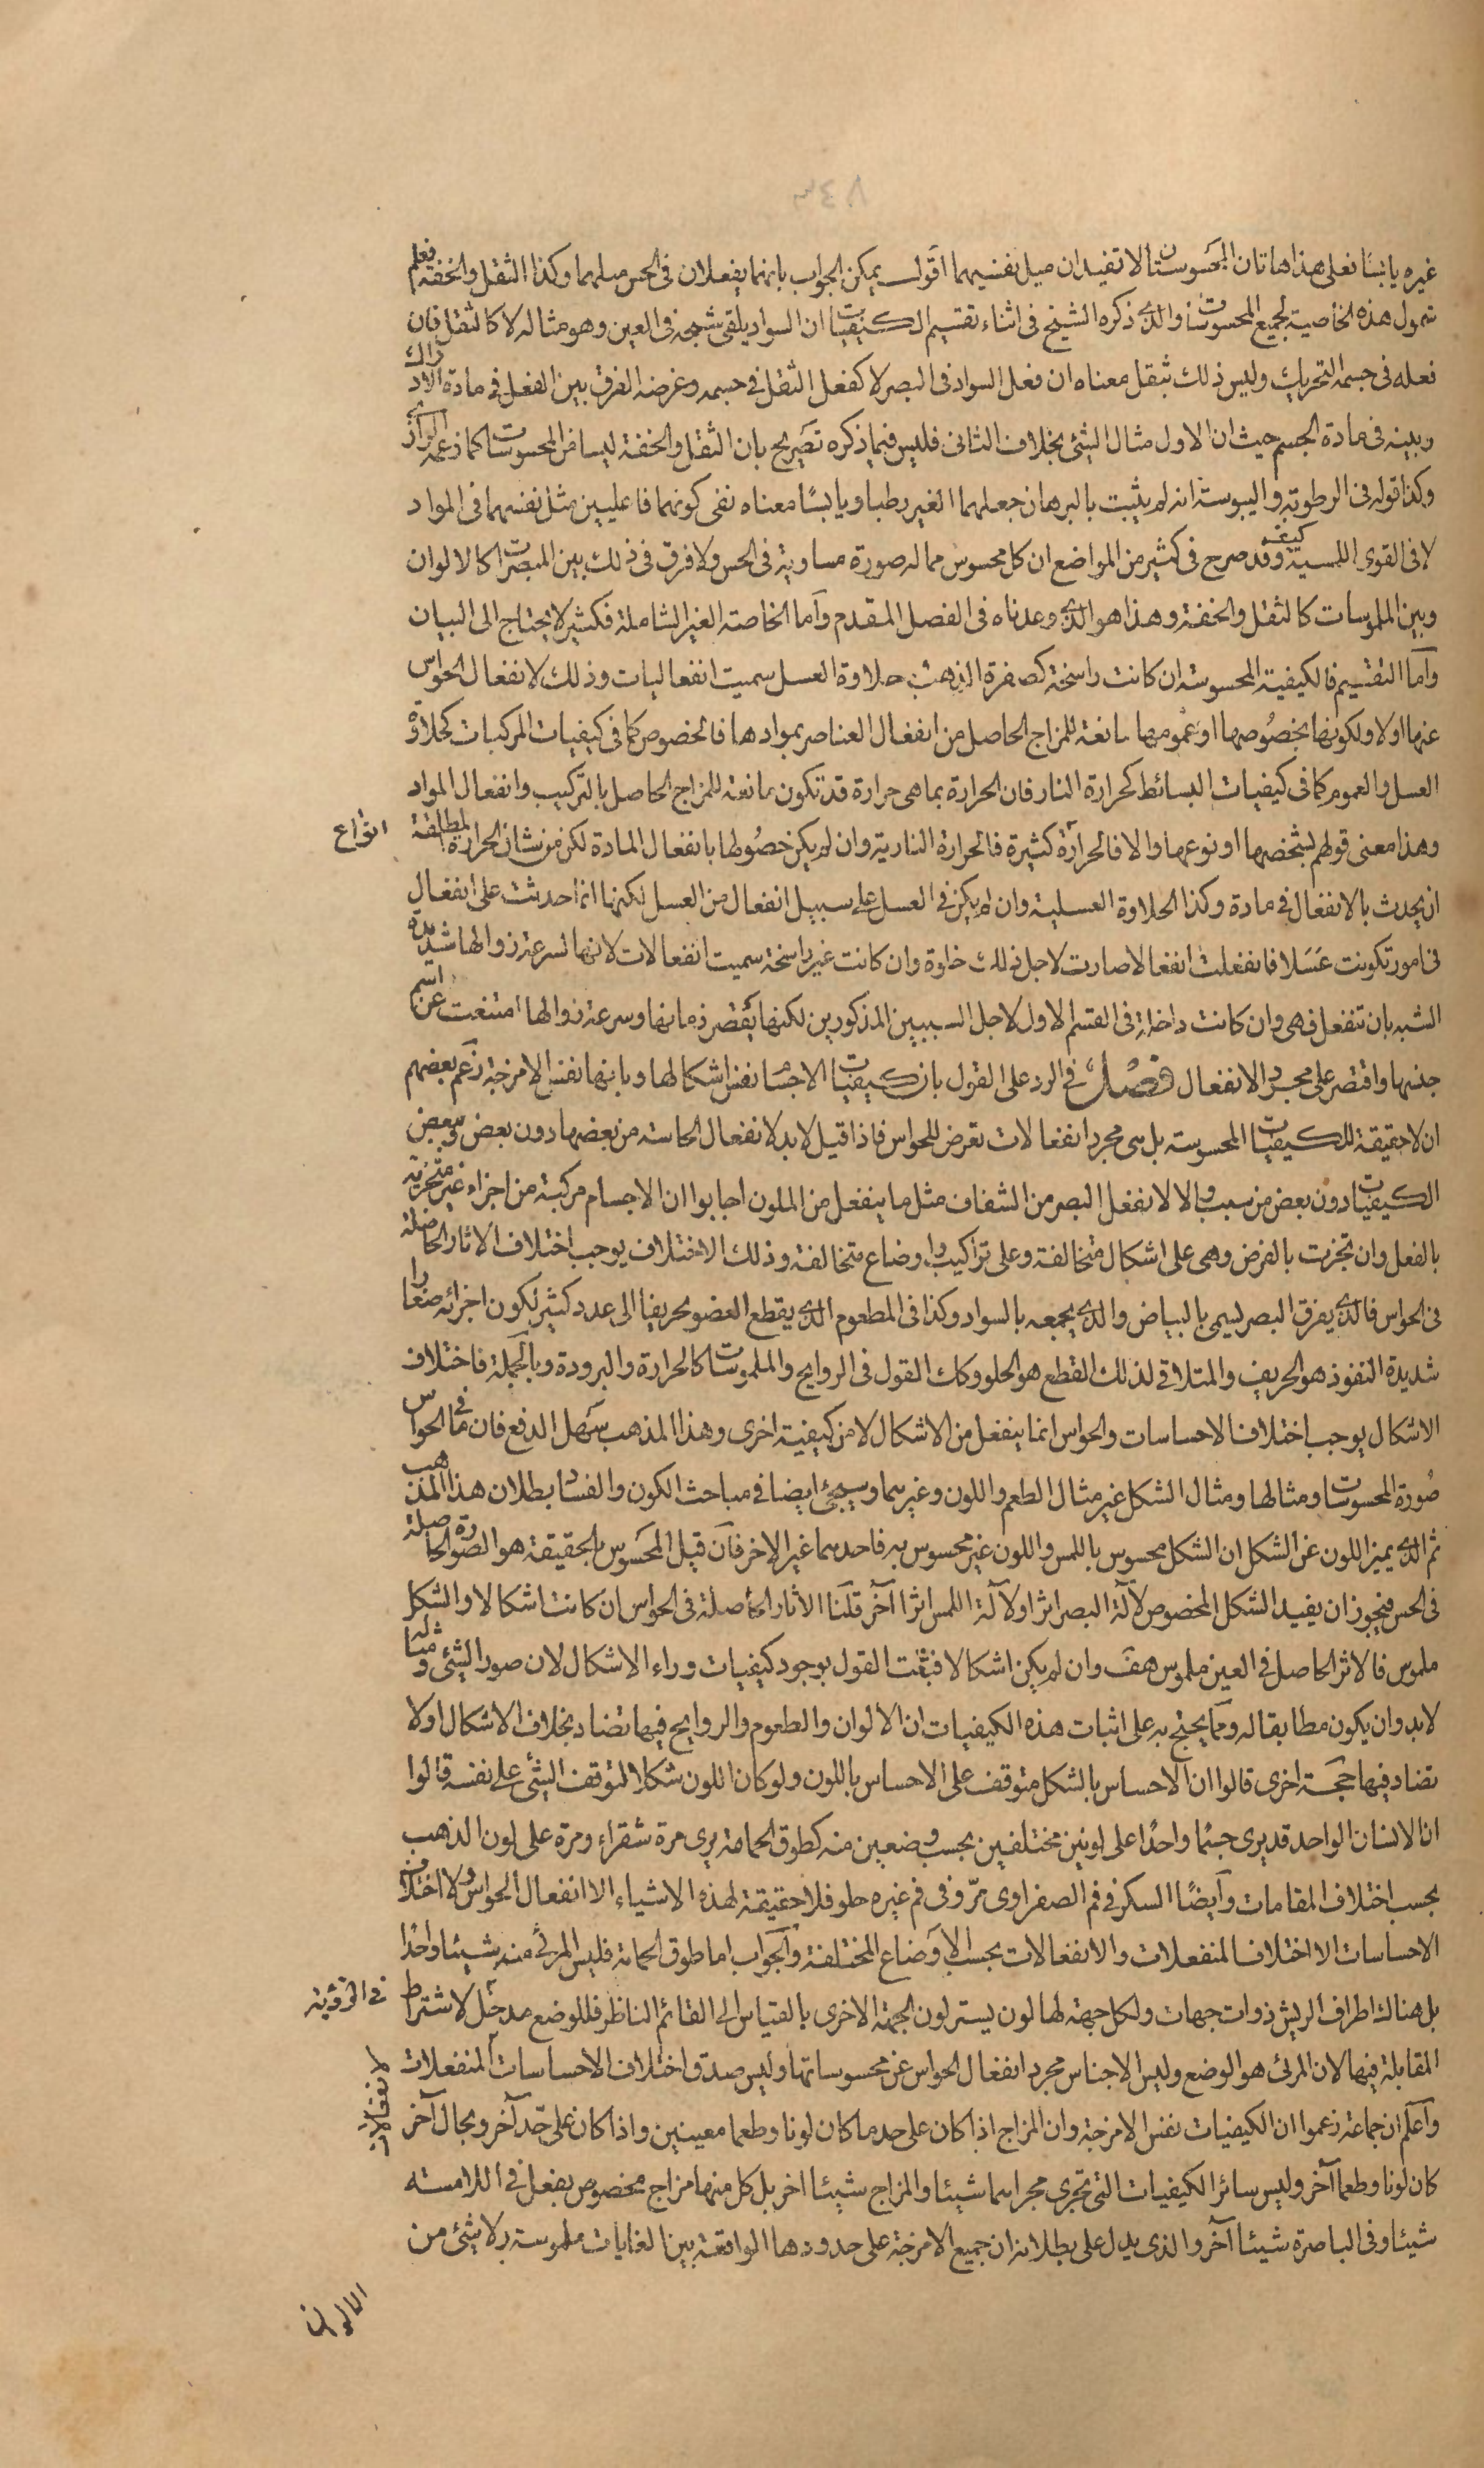 غيره يابسا فعلى هذا هاتان المحسوستان لا تفيدان مثل نفسيهما اقول يمكن الجواب بانهما يفعلان فى الحس مثلهما وكذا الثقل والخفة فعلم
شمول هذه الخاصية لجميع المحسوسات والذى ذكره الشيخ فى اثناء تقسيم الكيفيات ان السواد يلقى شبحه فى العين وهو مثاله لا كالثقل فان
فعله فى جسمه التحريك وليس ذلك بثقل معناه ان فعل السواد فى البصر لا كفعل الثقل فى جسمه وغرضه الفرق بين الفعل فى مادة الادراك
وبينه فى مادة الجسم حيث ان الاول مثال الشئ بخلاف الثانى فليس فيما ذكره تصريح بان الثقل والخفة ليسا من المحسوسات كما زعمه الرازى
وكذا قوله فى الرطوبة واليبوسة انه لم يثبت بالبرهان جعلهما الغير رطبا ويابسا معناه نفى كونهما فاعليين مثل نفسهما فى المواد
لا فى القوى اللمسية كيف وقد صرح فى كثير من المواضع ان كل محسوس مما له صورة مساوية فى الحس ولا فرق فى ذلك بين المبصرات كالالوان
وبين الملموسات كالثقل والخفة وهذا هو الذى وعدناه فى الفصل المقدم وآما الخاصة الغير الشاملة فكثير لا يحتاج الى البيان
وآما التقسيم فالكيفية المحسوسة ان كانت راسخة كصفرة الذهب حلاوة العسل سميت انفعاليات وذلك لانفعال الحواس
عنها اولا ولكونها بخصوصها او عمومها تابعة للمزاج الحاصل من انفعال العناصر بموادها فالخصوص كما فى كيفيات المركبات كحلاوة
العسل والعموم كما فى كيفيات البسائط كحرارة النار فان الحرارة بما هى حرارة قد تكون تابعة للمزاج الحاصل بالتركيب وانفعال المواد
وهذا معنى قولهم بشخصها او نوعها والا فالحرارة كثيرة فالحرارة النارية وان لم يكن خصوصها بانفعال المادة لكن من شان الحرارة المطلقة
انواع
ان يحدث بالانفعال فى مادة وكذا الحلاوة العسلية وان لم يكن فى العسل على سبيل انفعال من العسل لكنها انما حدثت على انفعال
فى امور تكونت عسلا فانفعلت انفعالا صارت لاجل ذلك حلوة وان كانت غير راسخة سميت انفعالات لانها لسرعة زوالها شديدة
الشبه بان تنفعل فهى وان كانت داخلة فى القسم الاول لاجل السببين المذكورين لكنها بقصر زمانها وسرعة زوالها امتنعت عن اسم
جنسها واقتصر على مجرد الانفعال فصل فى الرد على القول بان كيفيات الاجسام نفس اشكالها وبانها نفس الامزجة زعم بعضهم
ان لا حقيقة للكيفيات المحسوسة بل هى مجرد انفعالات تعرض للحواس فاذا قيل لا بد لانفعال الحاسة من بعضها دون بعض وبعض
الكيفيات دون بعض من سبب والا لانفعل البصر من الشفاف مثل ما ينفعل من الملون اجابوا ان الاجسام مركبة من اجزاء غير متجزية
بالفعل وان تجزت بالفرض وهى على اشكال متخالفة وعلى تراكيب واوضاع متخالفة وذلك الاختلاف يوجب اختلاف الاثار الحاصلة
فى الحواس فالذى يفرق البصر يسمى بالبياض والذى يجمعه بالسواد وكذا فى المطعوم الذى يقطع العضو تحريفا الى عدد كثير لكون اجزائه صغارا
شديدة النفوذ هو الحريف والمتلاقى لذلك القطع هو الحلو وكك القول فى الروايح والملموسات كالحرارة والبرودة وبالجملة فاختلاف
الاشكال يوجب اختلاف الاحساسات والحواس انما ينفعل من الاشكال لا من كيفية اخرى وهذا المذهب سهل الدفع فان ما فى الحواس
صورة المحسوسات ومثالها ومثال الشكل غير مثال الطعم واللون وغيرهما وسيجئ ايضا فى مباحث الكون والفساد بطلان هذا المذهب
ثم الذى يميز اللون عن الشكل ان الشكل محسوس باللمس واللون غير محسوس به فاحدهما غير الاخر فآن قيل المحسوس بالحقيقة هو الصورة الحاصلة
فى الحس فيجوز ان يفيد الشكل المخصوص لآلة البصر اثرا ولآلة اللمس اثرا آخر قلنا الاثار الحاصلة فى الحواس ان كانت اشكالا والشكل
ملموس فالاثر الحاصل فى العين ملموس هف وان لم يكن اشكالا فثبت القول بوجود كيفيات وراء الاشكال لان صور الشئ ومثاله
لا بد وان يكون مطابقا له ومما يحتج به على اثبات هذه الكيفيات ان الالوان والطعوم والروايح فيها تضاد بخلاف الاشكال اولا
تضاد فيها حجة اخرى قالوا ان الاحساس بالشكل متوقف على الاحساس باللون ولو كان اللون شكلا لتوقف الشئ على نفسه قالوا
ان الانسان الواحد قد يرى جسما واحدا على لونين مختلفين بحسب وضعين منه كطوق الحمامة يرى مرة شقراء ومرة على لون الذهب
بحسب اختلاف المقامات وآيضا السكر فى فم الصفراوى مر وفى فم غيره حلو فلا حقيقة لهذه الاشياء الا انفعال الحواس ولا اختلاف
الاحساسات الا اختلاف المنفعلات والانفعالات بحسب الاوضاع المختلفة والجواب اما طوق الحمامة فليس المرئى منه شيئا واحدا
بل هناك اطراف الريش ذوات جهات ولكل جهة لها لون يستر لون الجهة الاخرى بالقياس الى القائم الناظر فللوضع مدخل لاشتراط
فى الرؤية
المقابلة فيها لان المرئى هو الوضع وليس الاجناس مجرد انفعال الحواس عن محسوساتها وليس صدق اختلاف الاحساسات المنفعلات
لانفعالات
وآعلم ان جماعة زعموا ان الكيفيات نفس الامزجة وان المزاج اذا كان على حد ما كان لونا وطعما معينين واذا كان على حد آخر وبحال آخر
كان لونا وطعما آخر وليس سائر الكيفيات التى تجرى مجراهما شيئا والمزاج شيئا اخر بل كل منها مزاج مخصوص يفعل فى اللامسة
شيئا وفى الباصرة شيئا آخر والذى يدل على بطلانه ان جميع الامزجة على حدودها الواقعة بين الغايات ملموسة ولا شئ من
الالوان